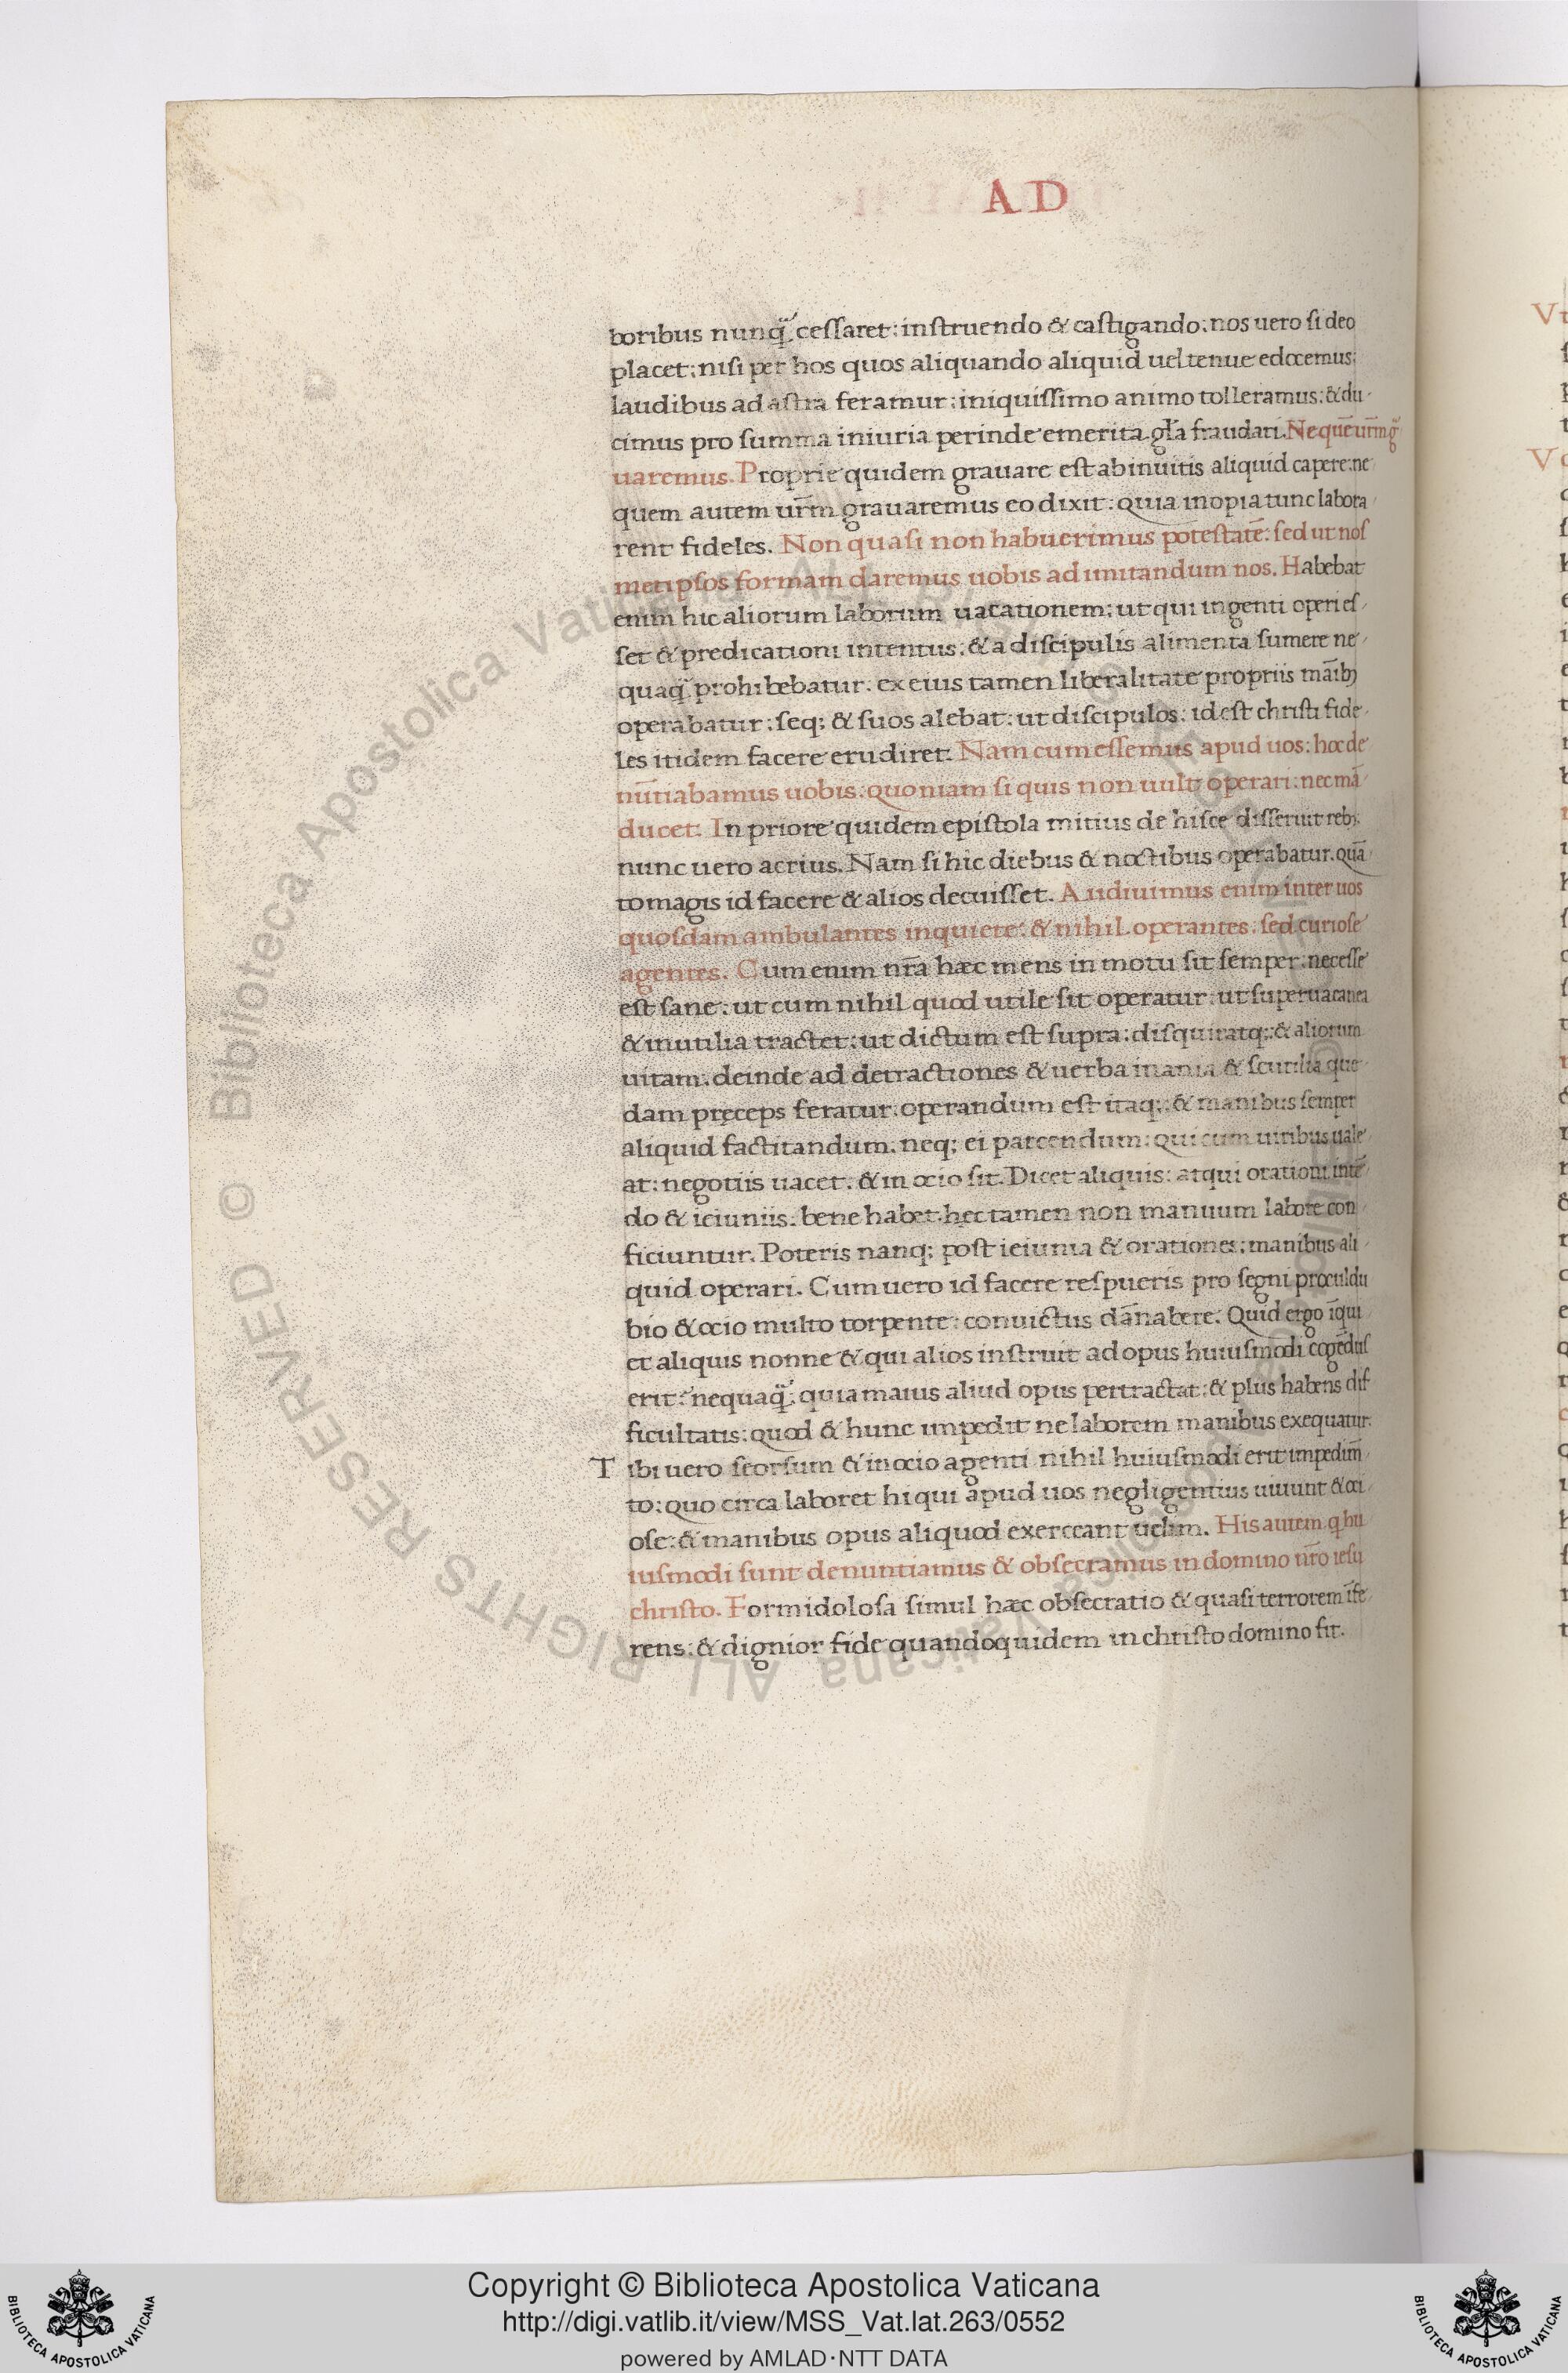 AD
boribus nunq̃ cessaret: instruendo & castigando: nos uero si deo
placet: nisi per hos quos aliquando aliquid uel tenue edocemus:
laudibus ad astra feramur: iniquissimo animo tolleramus: & du
cimus pro summa iniuria perinde emerita gl̃a fraudari. Nequē ur̃m g̃
uaremus. Proprie quidem grauare est ab inuitis aliquid capere: ne
quem autem ur̃m grauaremus eo dixit: quia inopia tunc labora
rent fideles. Non quasi non habuerimus potestatē: sed ut nos
metipsos formam daremus uobis ad imitandum nos. Habebat
enim hic aliorum laborum uacationem: ut qui ingenti operi es
set & predicationi intentus: & a discipulis alimenta sumere ne
quaq̃ prohibebatur: ex eius tamen liberalitate propriis mãibꝫ
operabatur: seq; & suos alebat: ut discipulos: id est christi fide
les itidem facere erudiret. Nam cum essemus apud uos: hoc de
nūtiabamus uobis: quoniam si quis non uult operari: nec mā
ducet. In priore quidem epistola mitius de hisce disseruit rebꝫ:
nunc uero acrius. Nam si hic diebus & noctibus operabatur. quā
to magis id facere & alios decuisset. Audiuimus enim inter uos
quosdam ambulantes inquiete: & nihil operantes: sed curiose
agentes. Cum enim nr̃a hæc mens in motu sit semper: necesse
est sane: ut cum nihil quod utile sit operatur: ut superuacanea
& inutilia tractet: ut dictum est supra: disquiratq;: & aliorum
uitam: deinde ad detractiones & uerba inania & scurilia que
dam pręceps feratur: operandum est itaq;: & manibus semper
aliquid factitandum. neq; ei parcendum: qui cum uiribus uale
at: negotiis uacet: & in ocio sit. Dicet aliquis: atqui orationi intē
do & ieiuniis: bene habet. hęc tamen non manuum labore con
ficiuntur. Poteris nanq; post ieiunia & orationes: manibus ali
quid operari. Cum uero id facere respueris pro segni proculdu
bio & ocio multo torpente: conuictus dãnabere. Quid ergo īqui
et aliquis nonne & qui alios instruit ad opus huiusmodi cogēdus
erit? nequaq̃: quia maius aliud opus pertractat: & plus habens dif
ficultatis: quod & hunc impedit ne laborem manibus exequatur.
Tibi uero seorsum & in ocio agenti nihil huiusmodi erit impedim̃
to: quo circa laboret hi qui apud uos negligentius uiuunt & oci
ose: & manibus opus aliquod exerceant uelim. His autem q hu
iusmodi sunt denuntiamus & obsecramus in domino nr̃o iesu
christo. Formidolosa simul hæc obsecratio & quasi terrorem īfe
rens: & dignior fide quandoquidem in christo domino fit.
Copyright © Biblioteca Apostolica Vaticana
http://digi.vatlib.it/view/MSS_Vat.lat.263/0552
powered by AMLAD·NTT DATA